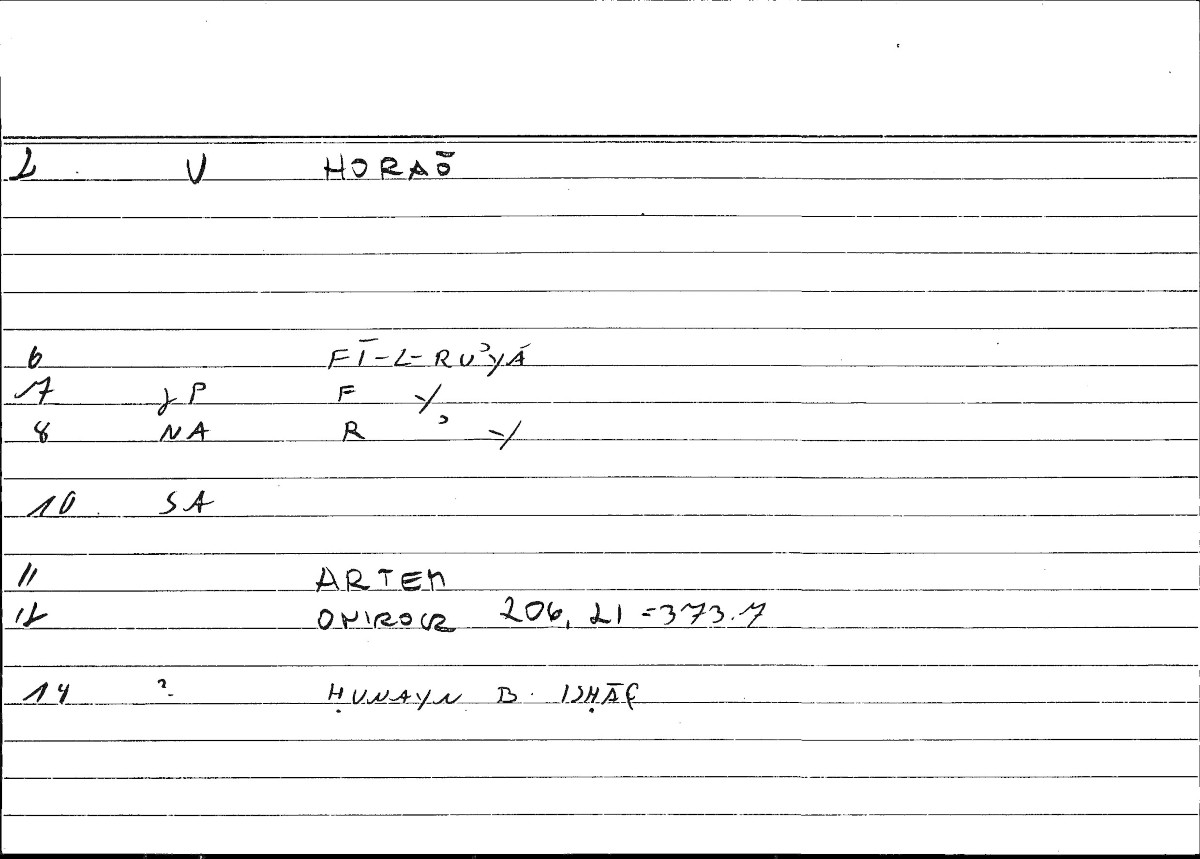 2 V HORAŌ
6 FĪ-L-RUʾYĀ
7 γP F -/
8 NA R ʾ -/
10 SA
11 ARTEM
12 ONIROCR 206, 21 = 373.7
14 ? ḤUNAYN B. ISḤĀQ